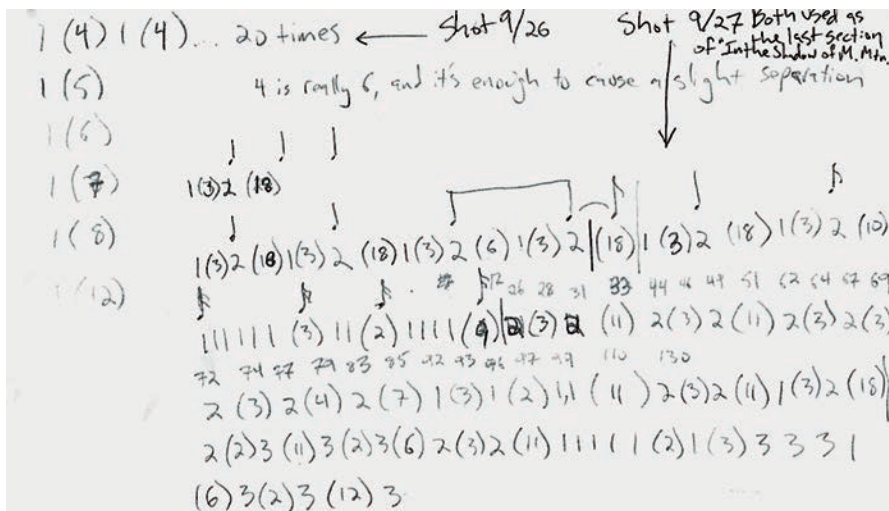 1 (4) 1 (4)... 20 times ← Shot 9/26 Shot 9/27 Both used as
the last section
of "In the Shadow of M. Mtn.
1 (5) 4 is really 6, and it's enough to cause a slight separation
1 (6)
1 (7) 1 (3) 2 (18)
1 (8) 1 (3) 2 (18) 1 (3) 2 (18) 1 (3) 2 (6) 1 (3) 2 (18) 1 (3) 2 (18) 1 (3) 2 (10)
1 (12) 26 28 31 33 44 46 49 51 62 64 67 69
1 1 1 1 1 1 (3) 1 1 (2) 1 1 1 1 (9) 2 (3) 2 (11) 2 (3) 2 (11) 2 (3) 2 (3)
72 74 77 79 83 85 92 93 96 97 99 110 130
2 (3) 2 (4) 2 (7) 1 (3) 1 (2) 1, 1 (11) 2 (3) 2 (11) 1 (3) 2 (18)
2 (2) 3 (11) 3 (2) 3 (6) 2 (3) 2 (11) 1 1 1 1 1 (2) 1 (3) 3 3 3 1
(6) 3 (2) 3 (12) 3